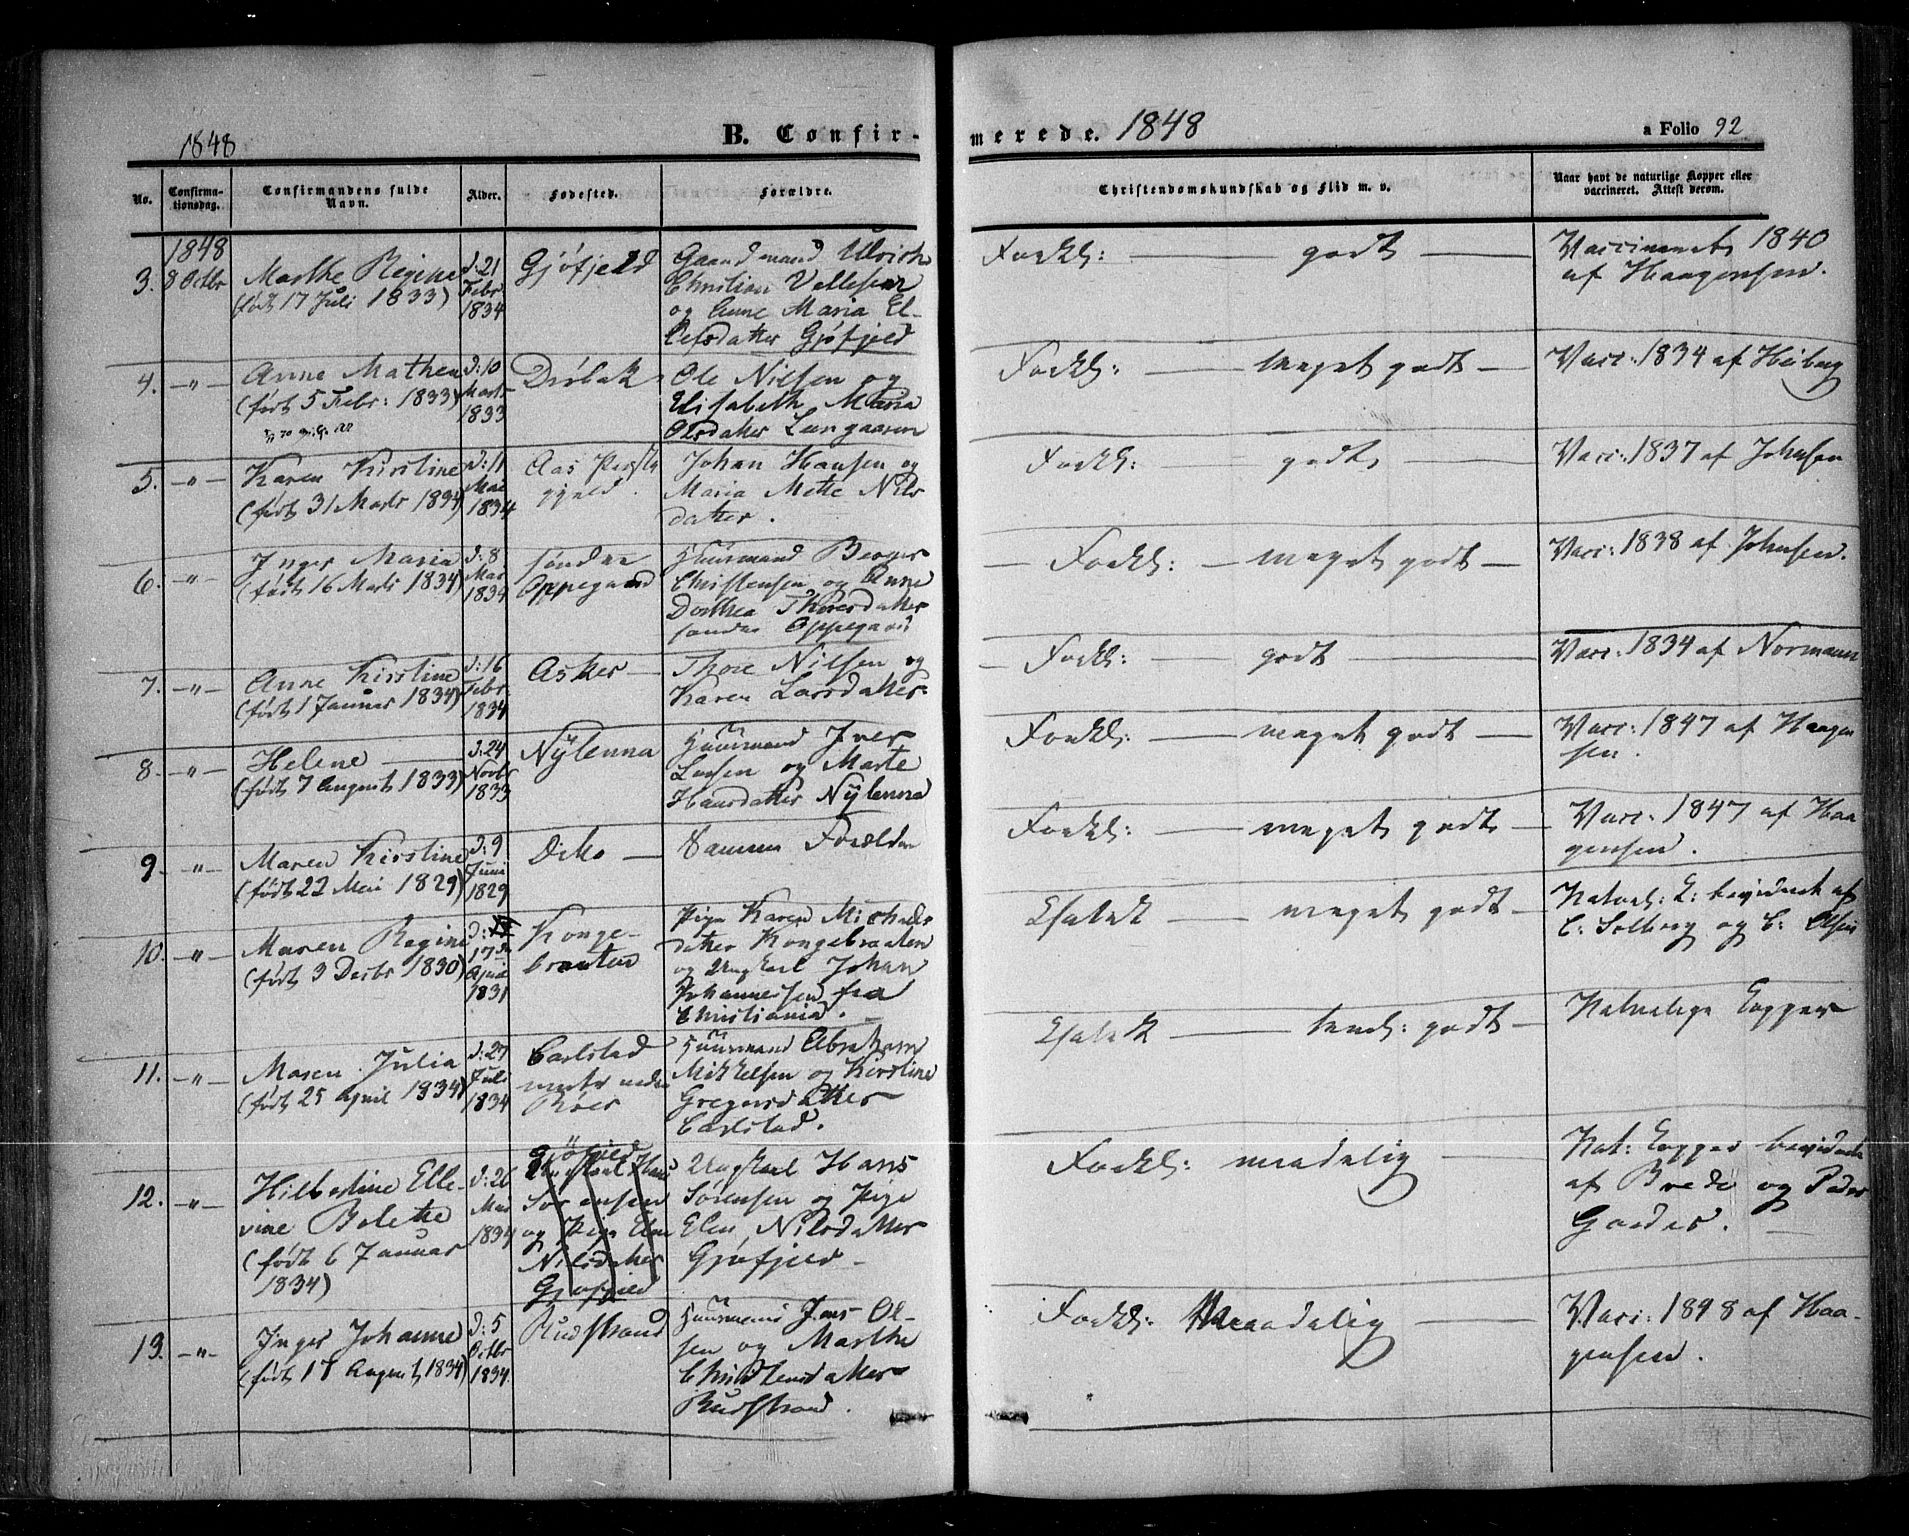 1848
B. Confir-
merede. 1848
a Folio 92
No.
Confirma-
tionsdag.
Confirmandens fulde
Navn.
Alder.
Fødested.
Forældre.
Christendomskundskab og Flid m. v.
Naar havt de naturlige Kopper eller
vaccineret. Attest derom.
1848
3. 8 Octbr Marthe Regine d: 21 Gjøfjeld Gaardmand Ulrich
(født 17 Juli 1833) Febr Christian
1834 og Anne Maria El-
lefsdatter Gjøfjeld
godt Vaccineret 1840
af Haagensen.
4. -"- Anne Mathea d: 10 Drøbak Ole Nielsen og
(født 5 Febr: 1833) Marts Elisabeth Maria
1833 Olsdatter
meget godt Vacc: 1834 af Heiberg
5. -"- Karen Kirstine d: 11 Aas Johan Hansen og
(født 31 Marts 1834) Mai gjeld. Maria Mette Nils
1834 datter.
godt Vacc: 1837 af Johnsen
6. -"- Inger Maria d: 8 søndre Huusmand
(født 16 Marts 1834) Mai Oppegaard Christensen og Anne
1834 Dorthea Thoresdatter
søndre Oppegaard
meget godt Vacc: 1838 af Johnsen.
7. -"- Anne Kirstine d: 16 Asker Thore Nilsen og
(født 1 Januar 1834) Febr Karen Larsdatter
1834
godt Vacc: 1834 af Normann
8. -"- Helene d: 24 Nÿlenna Huusmand Iver
(født 7 August 1833) Novbr Larsen og Marte
1833 Hansdatter Nÿlenna
meget godt Vacc: 1847 af Haagen
sen.
9. -"- Maren Kirstine d: 9 Dito Samme Forældre
(født 22 Mai 1829) Juni
1829
meget godt Vacc: 1847 af Haa
gensen.
10. -"- Maren Regine d: Konge- Pige Karen Michels
(født 3 Decbr 1830) 17 braaten datter Kongebraaten
April og Ungkarl Johan
1831 Johannessen fra
Christiania.
meget godt af
C: Solberg og C: Olsen
11. -"- Maren Julia d: 27 Carlstad Huusmand Abraham
(født 25 April 1834) Juli Mikkelsen og Kirstine
1834 Gregersdatter
Carlstad.
godt Naturlige Kopper
12. -"- Hilbertine Elle- d: 26 Gjøfjeld Ungkarl Hans
vine Bolette Mai Sørensen og Pige
(født 6 Januar 1834 Elen Nilsdatter
1834) Gjøfjeld
maadelig Nat: Kopper bevidnet
af og Peder
13. -"- Inger Johanne d: 5 Rudstrand Huusmand Jens Ol-
(født August 1834) Octbr sen og Marthe
1834. Christensdatter
Rudstrand.
Maadelig Vacc: af Haa-
gensen.